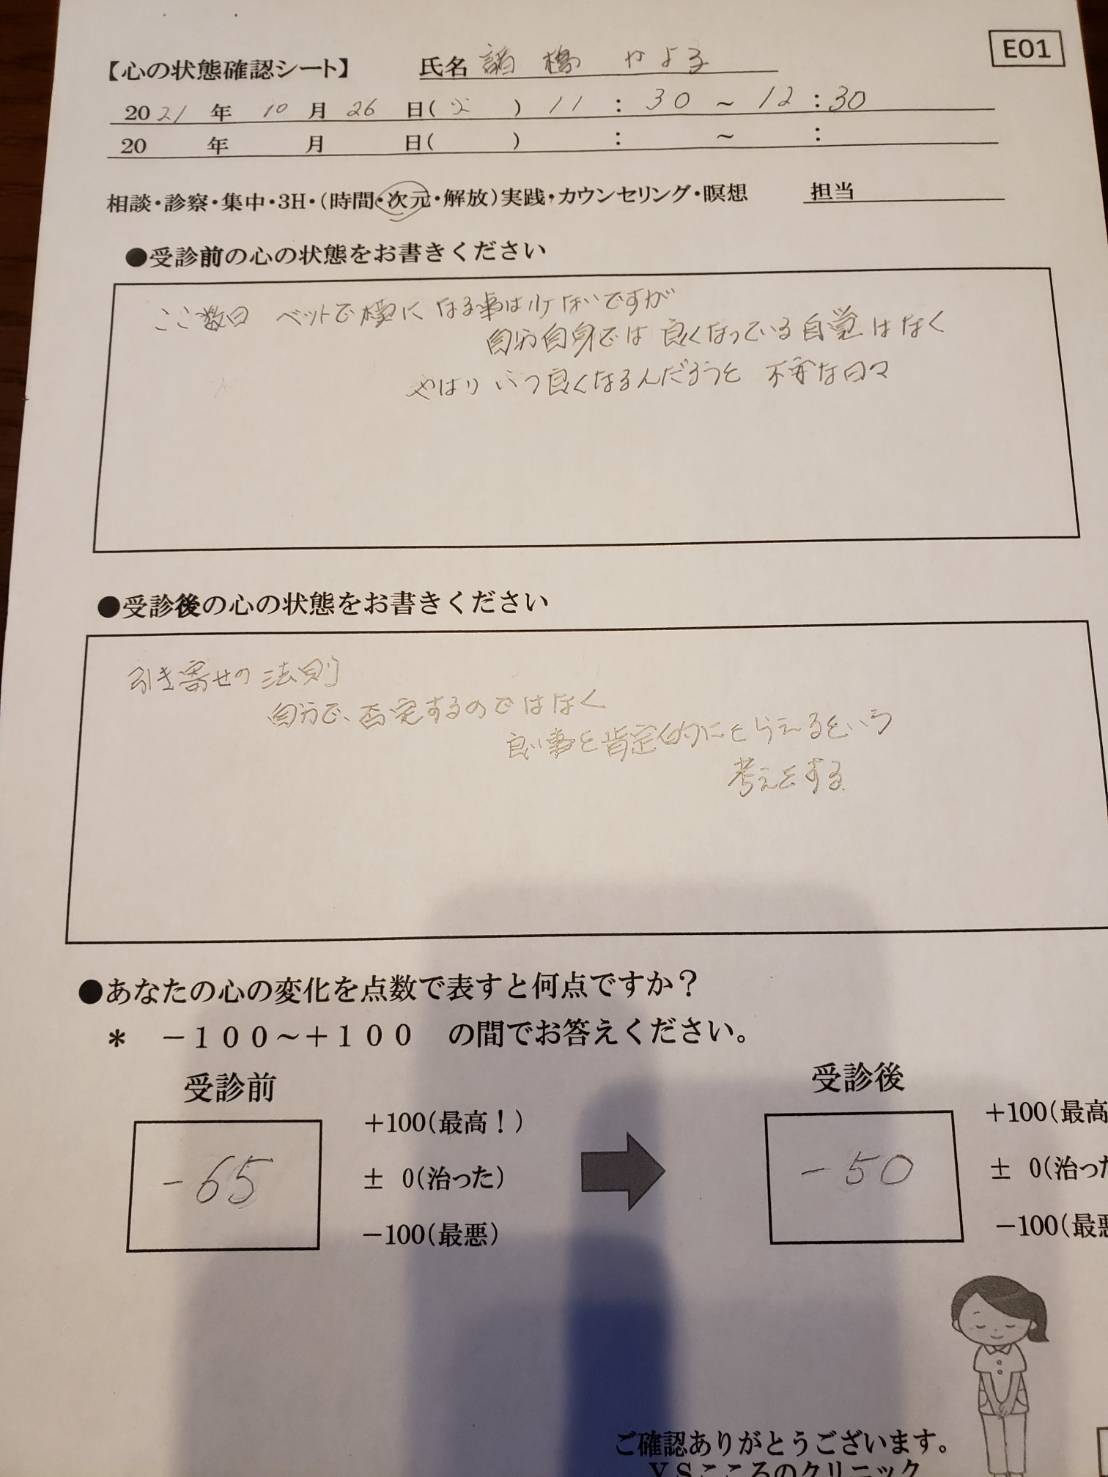 E01
【心の状態確認シート】 氏名 橋 やよ子
2021年 10月 26日(火) 11:30～12:30
20 年 月 日( ) : ～ :
相談・診察・集中・3H・(時間・次元・解放)実践・カウンセリング・瞑想 担当
●受診前の心の状態をお書きください
ここ数日 ベットで横になる事は少ないですが
自分自身では 良くなっている自覚はなく
やはり いつ良くなるんだろうと 不安な日々
●受診後の心の状態をお書きください
引き寄せの法則
自分で、否定するのではなく
良い事を肯定的にとらえるという
考えをする
●あなたの心の変化を点数で表すと何点ですか？
＊ －１００～＋１００ の間でお答えください。
受診前 受診後
-65 -50
+100(最高！) +100(最高
± 0(治った) ± 0(治っ
-100(最悪) -100(最悪
ご確認ありがとうございます。
YSこころのクリニック